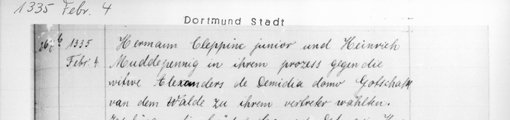 1335 Febr. 4
Dortmund Stadt
1335 Hermann Cleppinc junior und Heinrich
Febr. 4 Muddepennig in ihrem prozess gegen die
witwe Alexanders de Demidia domo Gotschalk
van dem Walde zu ihrem vertreter wählten.